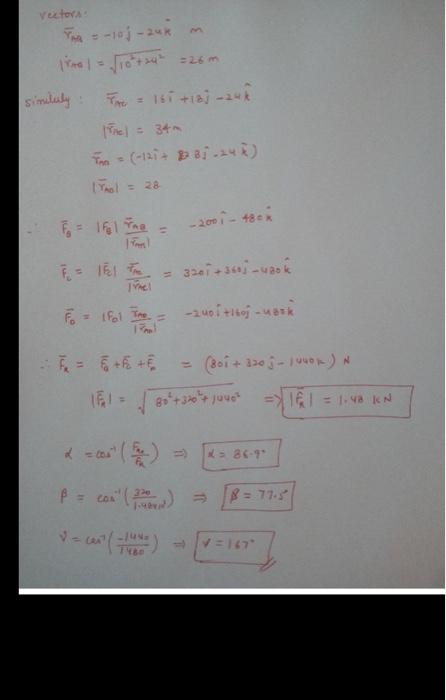 vectors.
r̄AB = -10ĵ - 24k̂ m
|r̄AB| = √10²+24² = 26 m
similuly : r̄AC = 16î + 18ĵ - 24k̂
|r̄AC| = 34 m
r̄AD = (-12î + 8ĵ - 24k̂)
|r̄AD| = 28
∴ F̄B = |FB| r̄AB/|r̄AB| = -200î - 480k̂
F̄C = |F̄C| r̄AC/|r̄AC| = 320î + 360ĵ - 480k̂
F̄D = |FD| r̄AD/|r̄AD| = -240î + 160ĵ - 480k̂
∴ F̄R = F̄B + F̄C + F̄D = (80î + 320ĵ - 1440k) N
|F̄R| = √80²+320²+1440² => |F̄R| = 1.48 kN
α = cos⁻¹(FRx/FR) => α = 86.9°
β = cos⁻¹(320/) => β = 77.5°
γ = cos⁻¹(-1440/1480) => γ = 167°